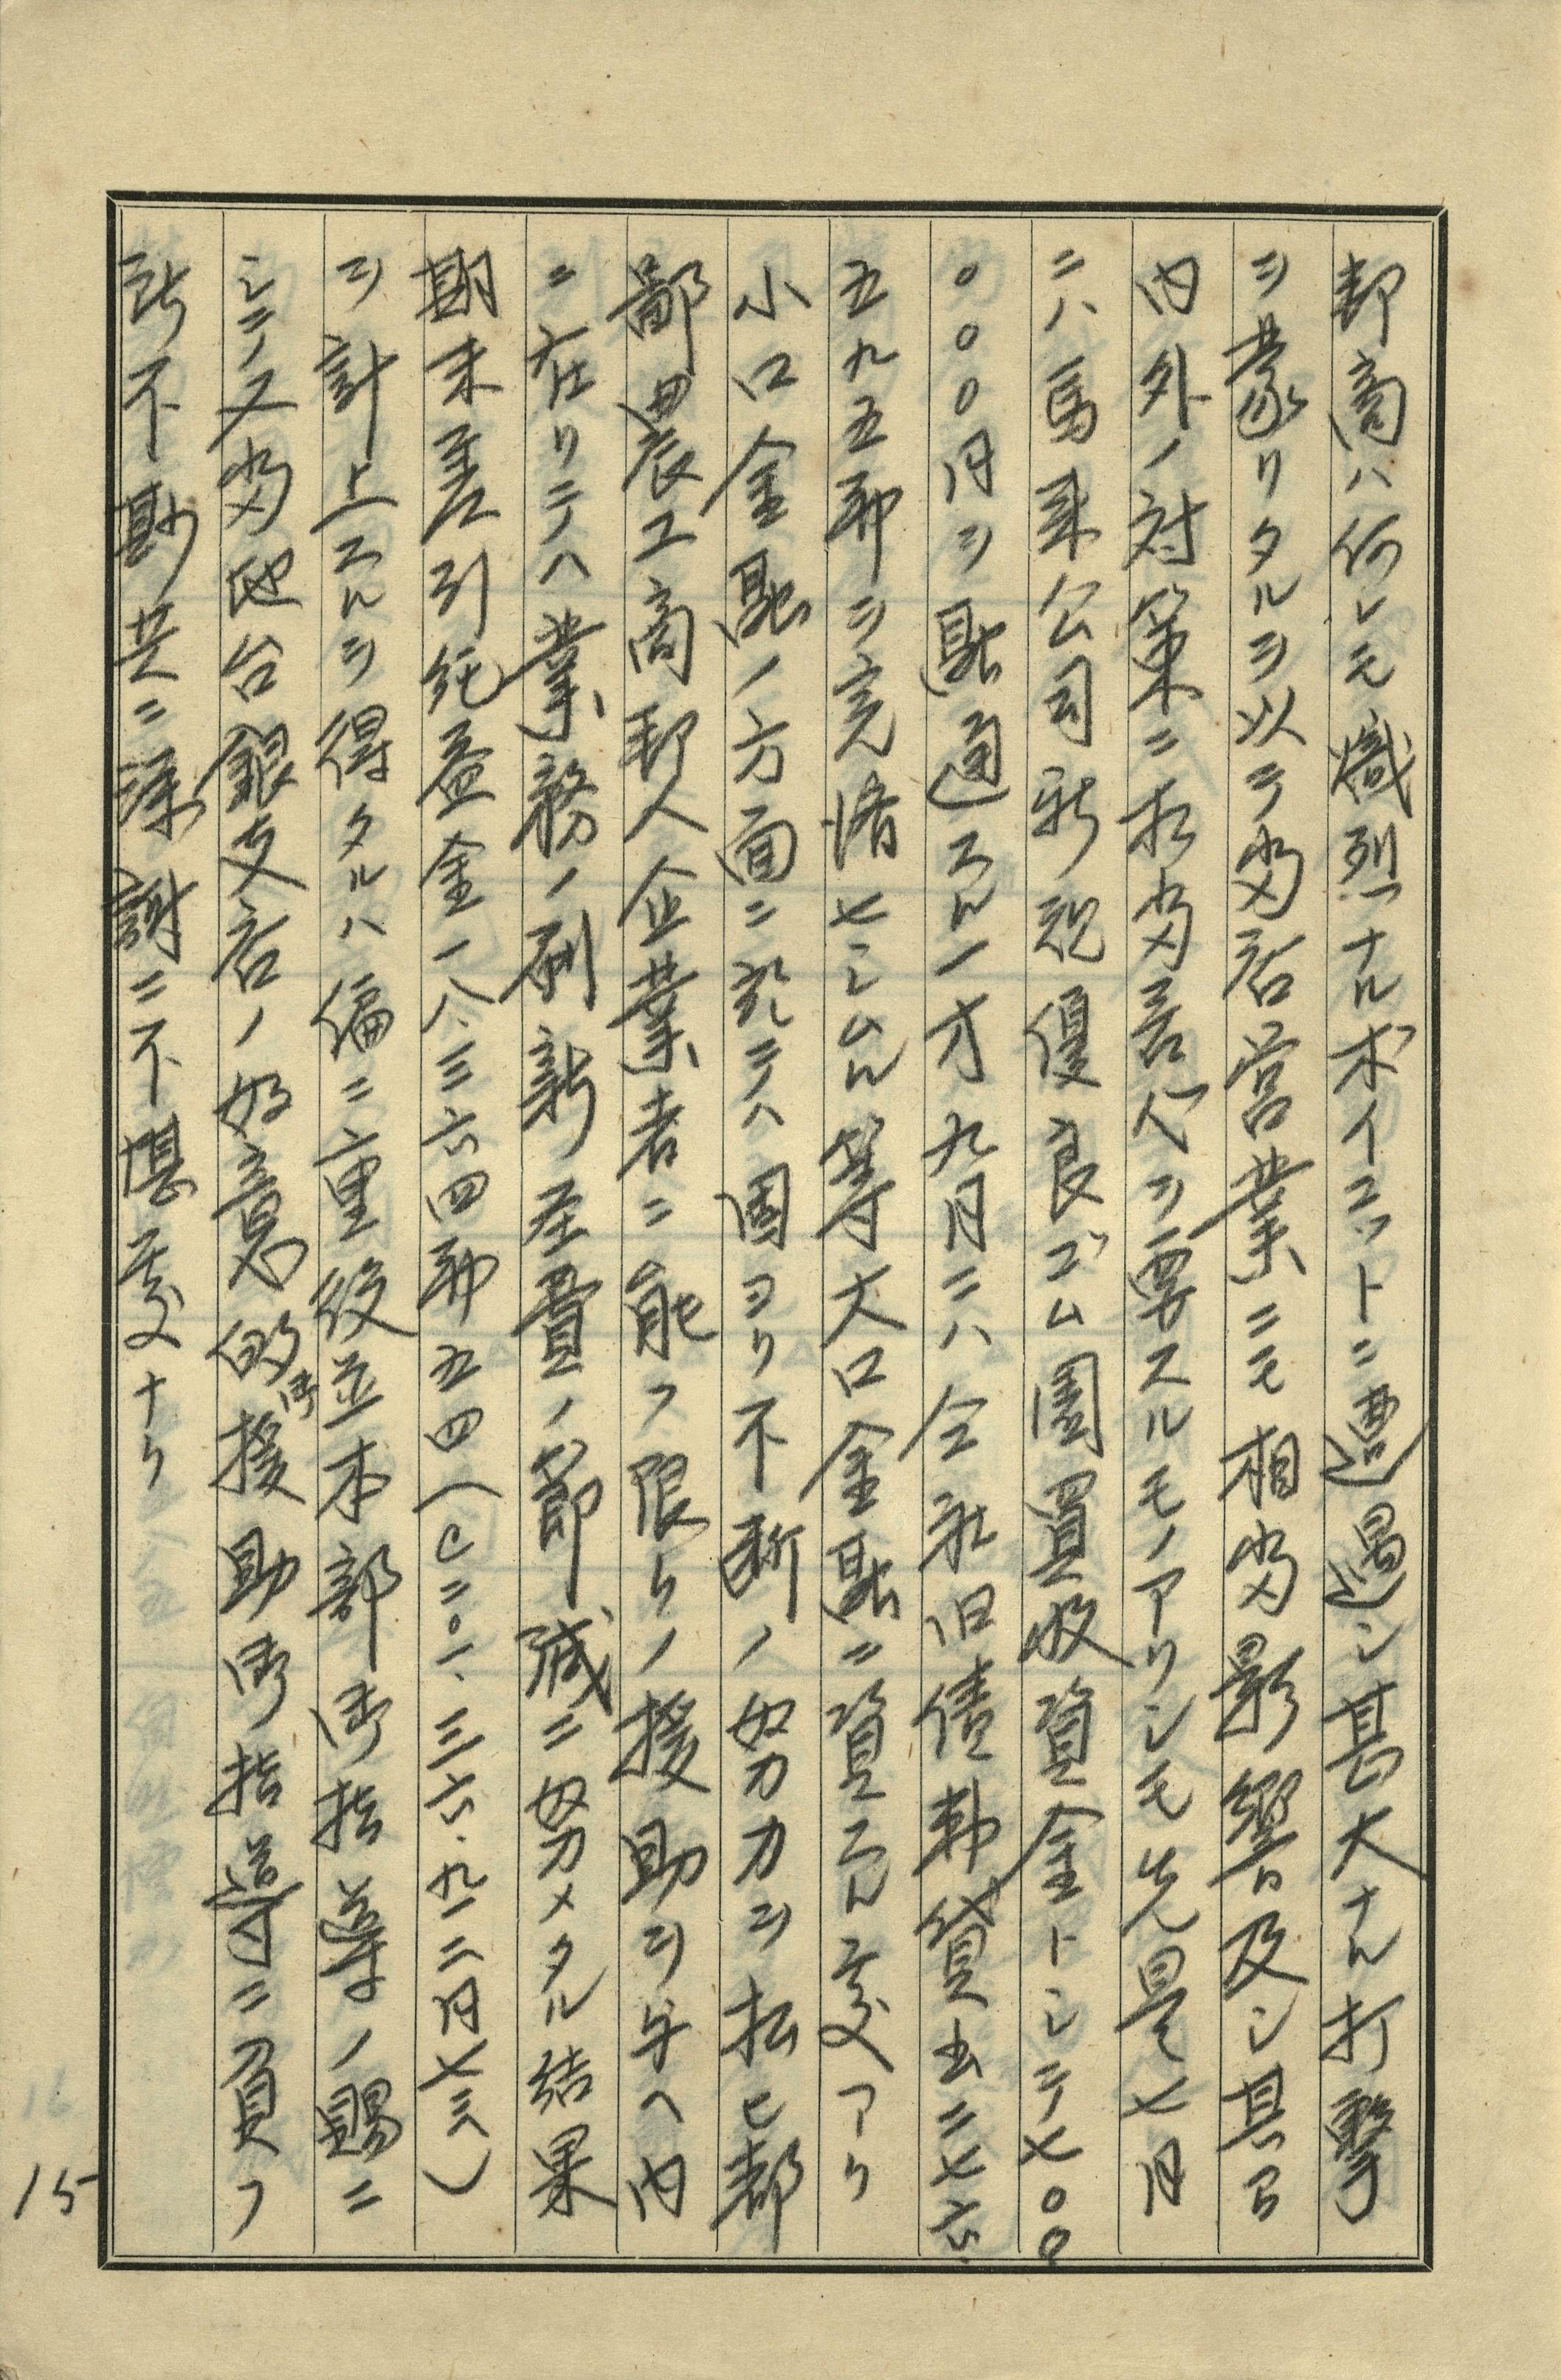 邦商ハ何レモ熾烈ナルボイコットニ遭遇シ甚大ナル打撃
ヲ蒙リタルヲ以テ当店営業ニモ相当影響及シ其ラ
内外ノ対策ニ於当苦心ヲ要スルモノアリシモ先是七月
ニハ馬来公司新規優良ゴム園買収資金トシテ七〇〇
〇〇〇円ヲ融通スル一方九月ニハ仝社旧債勘貸出二七六、
五九五弗ヲ完済セシムル等大口金融ニ資スル処アリ
小口金融ノ方面ニ於テハ固ヨリ不断ノ努力ヲ払ヒ都
鄙農工商邦人企業者ニ能フ限リノ援助ヲ与ヘ内
ニ在リテハ業務ノ刷新 経費ノ節減ニ努メタル結果
期末差引純益金一八、三六四弗五四(@二〇一、三六、九一二円七三)
ヲ計上スルヲ得タルハ偏ニ重役並本部御指導ノ賜ニ
シテ又当地台銀支店ノ好意的御援助御指導ニ負フ
所不尠共ニ深謝ニ不堪処ナリ
15